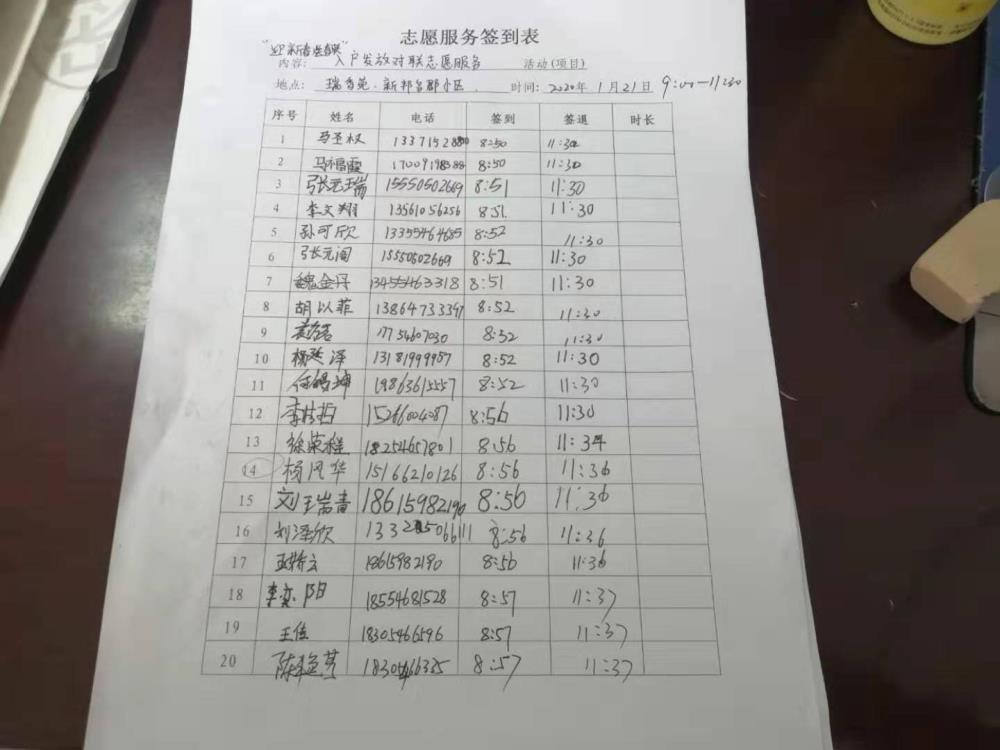 志愿服务签到表
"迎新春送春联"
内容: 入户发放对联志愿服务 活动(项目)
地点: 瑞香苑、新邦名郡小区 时间: 2020年1月21日 9:00-11:30
序号 姓名 电话 签到 签退 时长
1 马圣权 8:50 11:30
2 马福霞 8:50 11:30
3 张元瑞 15550502669 8:51 11:30
4 李文翔 13561056256 8:51 11:30
5 孙可欣 13355464685 8:52 11:30
6 张元闻 15550502669 8:52 11:30
7 魏金丹 13455463318 8:51 11:30
8 胡以菲 13864733347 8:52 11:30
9 8:52 11:30
10 杨延泽 13181999987 8:52 11:30
11 19863615557 8:52 11:30
12 15266004087 8:56 11:30
13 徐荣程 18254657801 8:56 11:34
14 杨风华 15166210126 8:56 11:36
15 刘王瑞青 18615982190 8:56 11:36
16 刘泽欣 8:56 11:36
17 18615982190 8:56 11:36
18 李奕阳 18554681528 8:57 11:37
19 王佳 18305466596 8:57 11:37
20 8:57 11:37